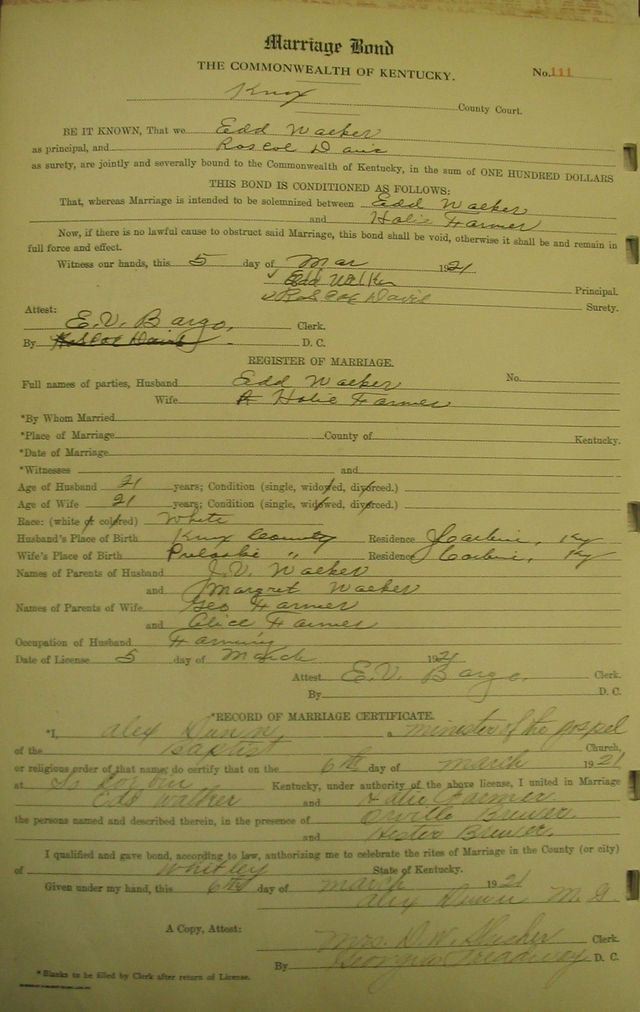 Marriage Bond
THE COMMONWEALTH OF KENTUCKY. No. 111
Knox County Court.
BE IT KNOWN, That we Edd Walker
as principal, and Roscoe Davis
as surety, are jointly and severally bound to the Commonwealth of Kentucky, in the sum of ONE HUNDRED DOLLARS
THIS BOND IS CONDITIONED AS FOLLOWS:
That, whereas Marriage is intended to be solemnized between Edd Walker
and Halie Farmer
Now, if there is no lawful cause to obstruct said Marriage, this bond shall be void, otherwise it shall be and remain in
full force and effect.
Witness our hands, this 5 day of Mar 1921
Edd Walker Principal.
Roscoe Davis Surety.
Attest:
E. V. Bargo, Clerk.
By Roscoe Davis D. C.
REGISTER OF MARRIAGE.
Full names of parties, Husband Edd Walker No.
Wife Halie Farmer
*By Whom Married
*Place of Marriage County of Kentucky.
*Date of Marriage
*Witnesses and
Age of Husband 21 years; Condition (single, widowed, divorced.)
Age of Wife 21 years; Condition (single, widowed, divorced.)
Race: (white or colored) White
Husband's Place of Birth Knox County Residence Corbin, Ky
Wife's Place of Birth Pulaskie " Residence Corbin, Ky
Names of Parents of Husband J. V. Walker
and Margret Walker
Names of Parents of Wife Geo Farmer
and Alice Farmer
Occupation of Husband Farming
Date of License 5 day of March 1921
Attest E. V. Bargo. Clerk.
By D. C.
*RECORD OF MARRIAGE CERTIFICATE.
*I, Alex Dunn a minister of the gospel
of the Baptist Church,
or religious order of that name, do certify that on the 6th day of march 1921
at Corbin Kentucky, under authority of the above license, I united in Marriage
Edd Walker and Halie Farmer
the persons named and described therein, in the presence of Orville Brewer.
and Hester Brewer.
I qualified and gave bond, according to law, authorizing me to celebrate the rites of Marriage in the County (or city)
of Whitley State of Kentucky.
Given under my hand, this 6th day of march 1921
Alex Dunn M. G.
A Copy, Attest:
Mrs. D. W. Clerk
By Georgia Treadway D. C.
* Blanks to be filled by Clerk after return of License.